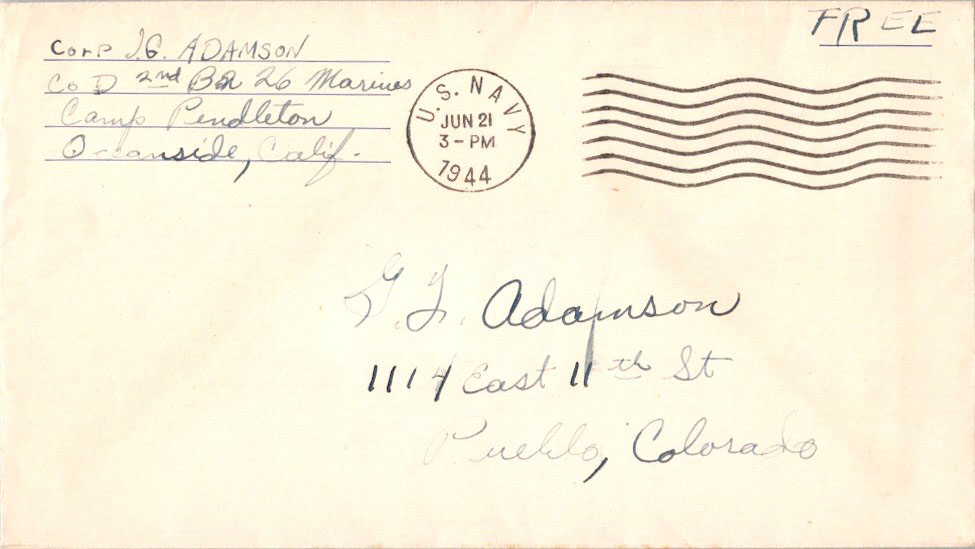 FREE
Corp J.G. ADAMSON
Co D 2nd Bn 26 Marines
Camp Pendleton
Oceanside, Calif.
U.S. NAVY
JUN 21
3-PM
1944
G.F. Adamson
1114 East 11th St
Pueblo, Colorado